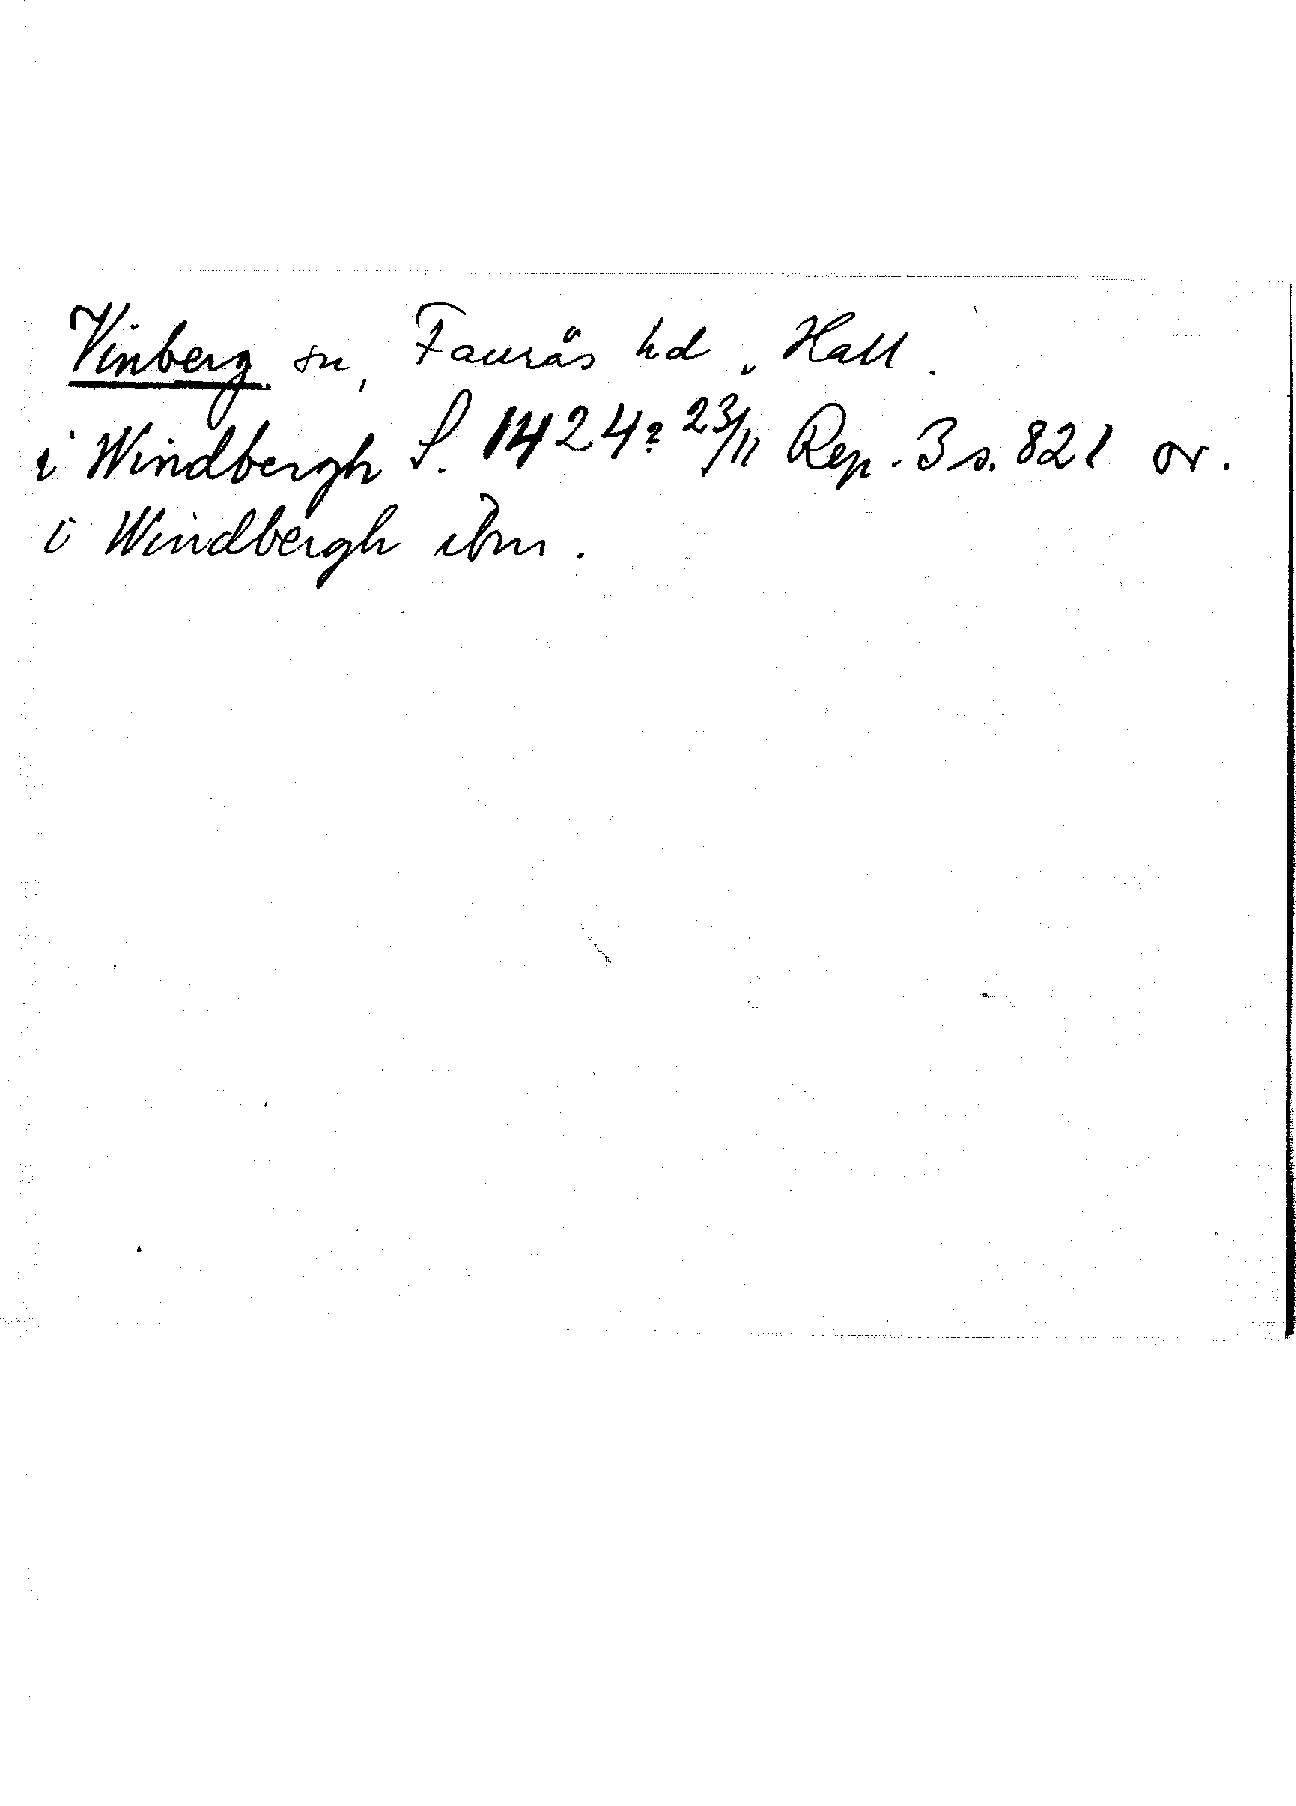 Vinberg sn, Faurås hd, Hall.
i Windbergh S. 1424? 23/11 Rep. 3 s. 821 or.
i Windbergh ibm.